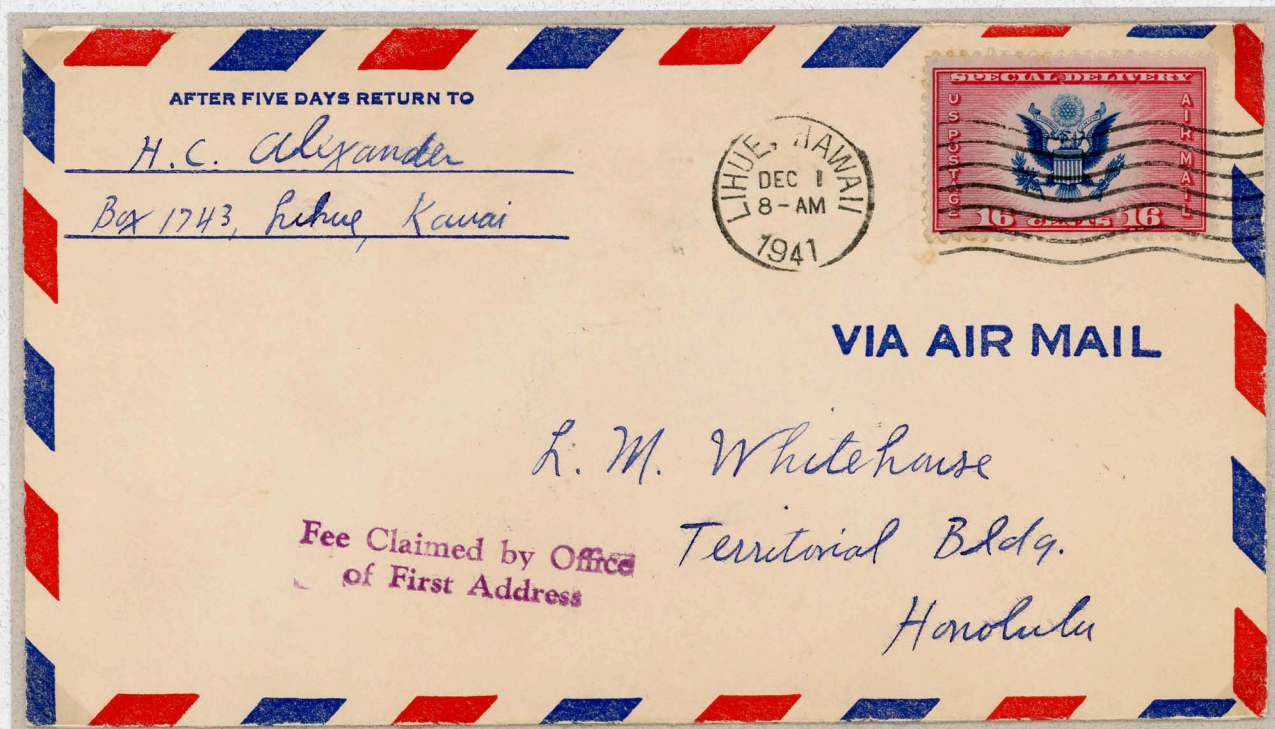 AFTER FIVE DAYS RETURN TO
H.C. Alexander
Box 1743, Lihue, Kauai
LIHUE, HAWAII
DEC 1
8-AM
1941
SPECIAL DELIVERY
US POSTAGE
AIR MAIL
16 CENTS 16
VIA AIR MAIL
L. M. Whitehouse
Territorial Bldg.
Honolulu
Fee Claimed by Office
of First Address